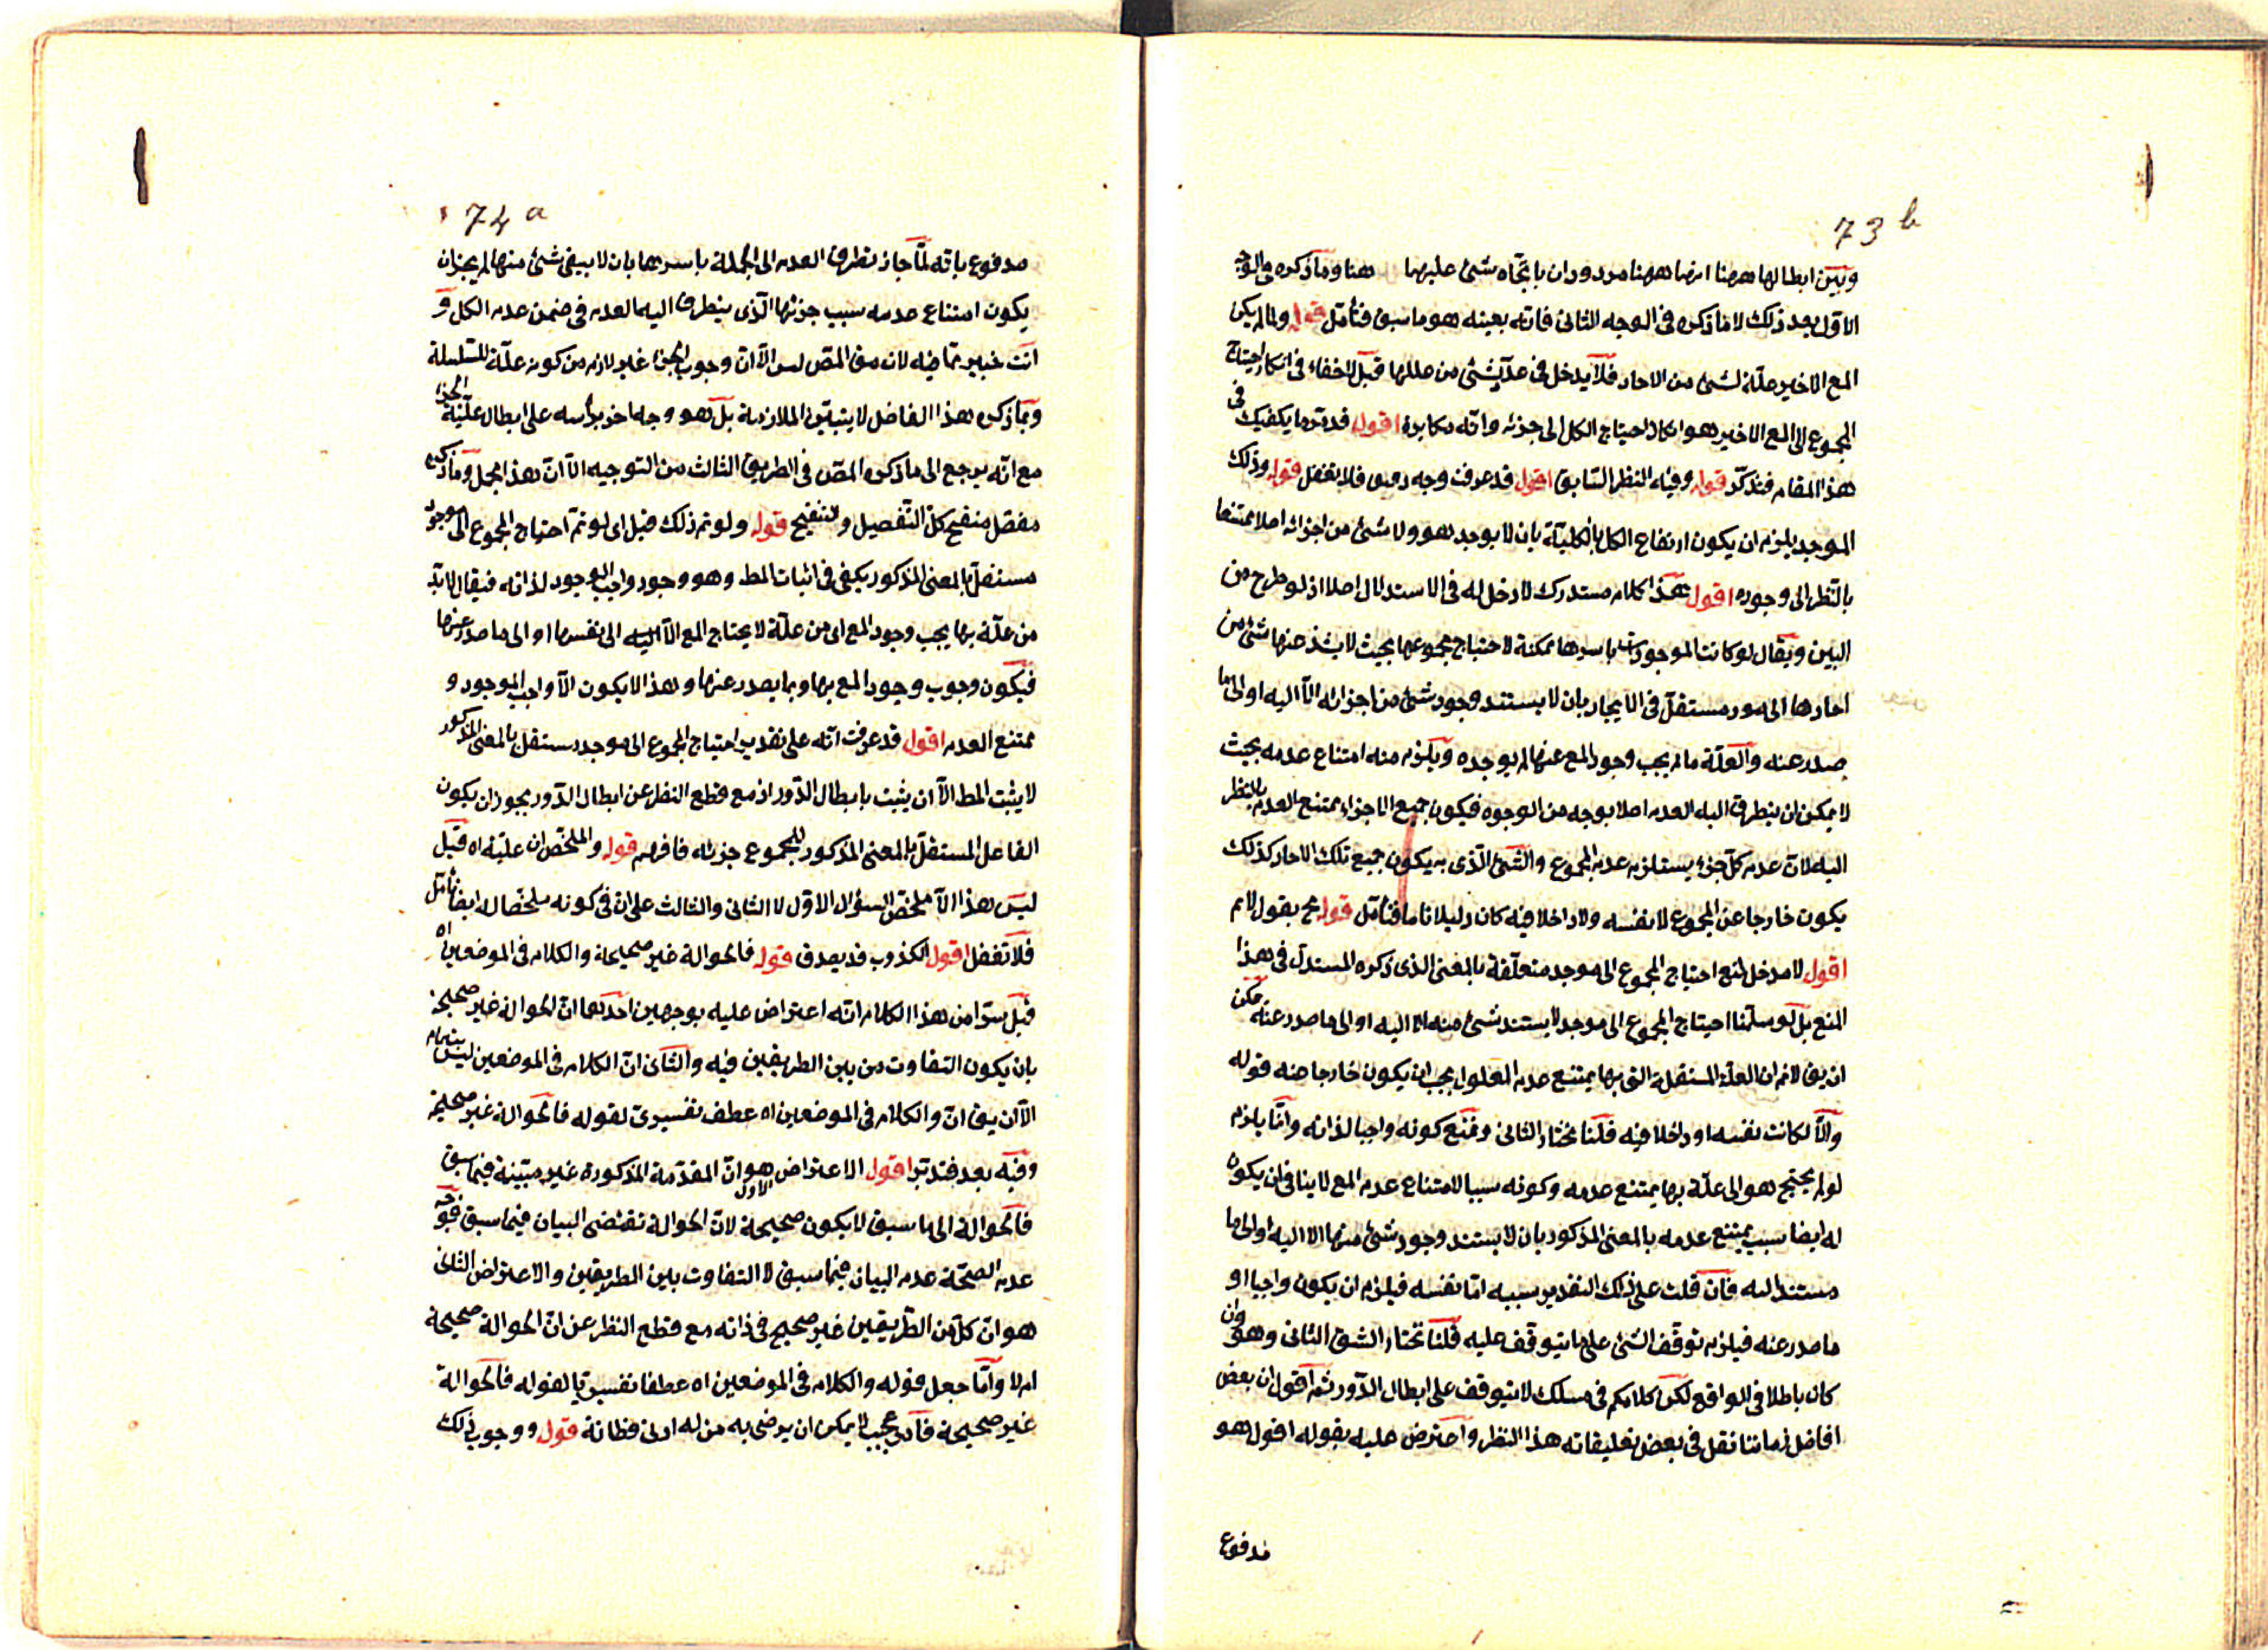 73 b
وبين ابطالها ههنا ايضا ههنا مردودان باتجاه شئ عليهما هنا وما ذكره في الوجه
الاول بعد ذلك لا ما ذكره في الوجه الثانى فانه بعينه هو ما سبق فتأمل قوله ولما لم يكن
المع الاخير علة لشئ من الاحاد فلا يدخل في علية شئ من عللها قيل لا خفاء في انكار احتياج
المجموع الى المع الاخير هو انكار احتياج الكل الى جزئه وانه مكابرة اقول قد مر ما يكفيك في
هذا المقام فتذكر قوله وفيه النظر السابق اقول قد عرفت وجه دفعه فلا تغفل قوله وذلك
الموجد يلزم ان يكون ارتفاع الكل بالكلية بان لا يوجد هو ولا شئ من اجزائه اصلا ممتنعا
بالنظر الى وجوده اقول هذا كلام مستدرك لا دخل له في الاستدلال اصلا اذ لو طرح من
البين ويقال لو كانت الموجودات باسرها ممكنة لاحتياج مجموعها بحيث لا يشذ عنها شئ من
احادها الى موجد مستقل في الايجاد بان لا يستند وجود شئ من اجزائه الا اليه او الى ما
صدر عنه والعلة ما لم يجب وجود المع عنها لم يوجده ويلزم منه امتناع عدمه بحيث
لا يمكن ان يتطرق اليه العدم اصلا بوجه من الوجوه فيكون جميع الاجزاء ممتنع العدم بالنظر
اليه لان عدم كل جزء يستلزم عدم المجموع والشئ الذى به يكون جميع تلك الاحاد كذلك
يكون خارجا عن المجموع لا نفسه ولا داخلا فيه كان دليلا تاما فتأمل قوله مح يقول لا نم
اقول لا مدخل لمنع احتياج المجموع الى موجد متعلقة بالمعنى الذى ذكره المستدل في هذا
المنع بل لو سلمنا احتياج المجموع الى موجد لا يستند شئ منه الا اليه او الى ما صدر عنه يمكن
ان يق لا نم ان العلة المستقلة التى بها يمتنع عدم المعلول يجب ان يكون خارجا عنه قوله
والا لكانت نفسه او داخلا فيه قلنا نختار الثانى ونمنع كونه واجبا لذاته وانما يلزم
لو لم يحتج هو الى علة بها يمتنع عدمه وكونه سببا لامتناع عدم المع لا ينافى ان يكون
له ايضا سبب يمتنع عدمه بالمعنى المذكور بان لا يستند وجود شئ منها الا اليه او الى ما
مستند اليه فان قلت على ذلك التقدير سببه اما نفسه فيلزم ان يكون واجبا او
ما صدر عنه فيلزم توقف الشئ على ما يتوقف عليه قلنا نختار الشق الثانى وهو وان
كان باطلا في الواقع لكن كلامكم في مسلك لا يتوقف على ابطال الدور ثم اقول ان بعض
افاضل زماننا نقل في بعض تعليقاته هذا النظر واعترض عليه بقوله اقول هو
مدفوع
74 a
مدفوع بانه لما جاز تطرق العدم الى الجملة باسرها بان لا يبقى شئ منها لم يجز ان
يكون امتناع عدمه بسبب جزئها الذى يتطرق اليه العدم في ضمن عدم الكل و
انت خبير بما فيه لان منع المص ليس الا ان وجوب الجزء غير لازم من كونه علة للسلسلة
وبما ذكره هذا الفاضل لا يتبين الملازمة بل هو وجه اخر برأسه على ابطال علية الجزء
مع انه يرجع الى ما ذكره المص في الطريق الثالث من التوجيه الا ان هذا مجمل وما ذكره
مفصل منقح كل التفصيل والتنقيح قوله ولو تم ذلك قيل اى لو تم احتياج المجموع الى موجد
مستقل بالمعنى المذكور يكفى في اثبات المط وهو وجود واجب الوجود لذاته فيقال لا بد
من علة بها يجب وجود المع اى من علة لا يحتاج المع الا اليه الى نفسها او الى ما صدر عنها
فيكون وجوب وجود المع بها وبما يصدر عنها وهذا لا يكون الا واجب الموجود و
ممتنع العدم اقول قد عرفت انه على تقدير احتياج المجموع الى موجد مستقل بالمعنى المذكور
لا يثبت المط الا ان يثبت بابطال الدور اذ مع قطع النظر عن ابطال الدور يجوز ان يكون
الفاعل المستقل بالمعنى المذكور للمجموع جزئه فافهم قوله والملخص ان علية اه قيل
ليس هذا الا ملخص السؤال الاول لا الثانى والثالث على ان في كونه ملخصا له ايضا تأمل
فلا تغفل اقول الكذوب قد يصدق قوله فالحوالة غير صحيحة والكلام في الموضعين اه
قيل يترا من هذا الكلام انه اعتراض عليه بوجهين احدهما ان الحوالة غير صحيحة
بان يكون التفاوت من بين الطريقين فيه والثانى ان الكلام في الموضعين ليس بتمام
الا ان يق ان والكلام في الموضعين اه عطف تفسيرى لقوله فالحوالة غير صحيحة
وفيه بعد فتدبر اقول الاعتراض الاول هو ان المقدمة المذكورة غير مبينة فيما سبق
فالحوالة الى ما سبق لا يكون صحيحة لان الحوالة تقتضى البيان فيما سبق فوجه
عدم الصحة عدم البيان فيما سبق لا التفاوت بين الطريقين والاعتراض الثانى
هو ان كلا من الطريقين غير صحيح في ذاته مع قطع النظر عن ان الحوالة صحيحة
ام لا واما جعل قوله والكلام في الموضعين اه عطفا تفسيريا لقوله فالحوالة
غير صحيحة فأمر عجيب لا يمكن ان يرضى به من له ادنى فطانة قوله ووجوب ذلك